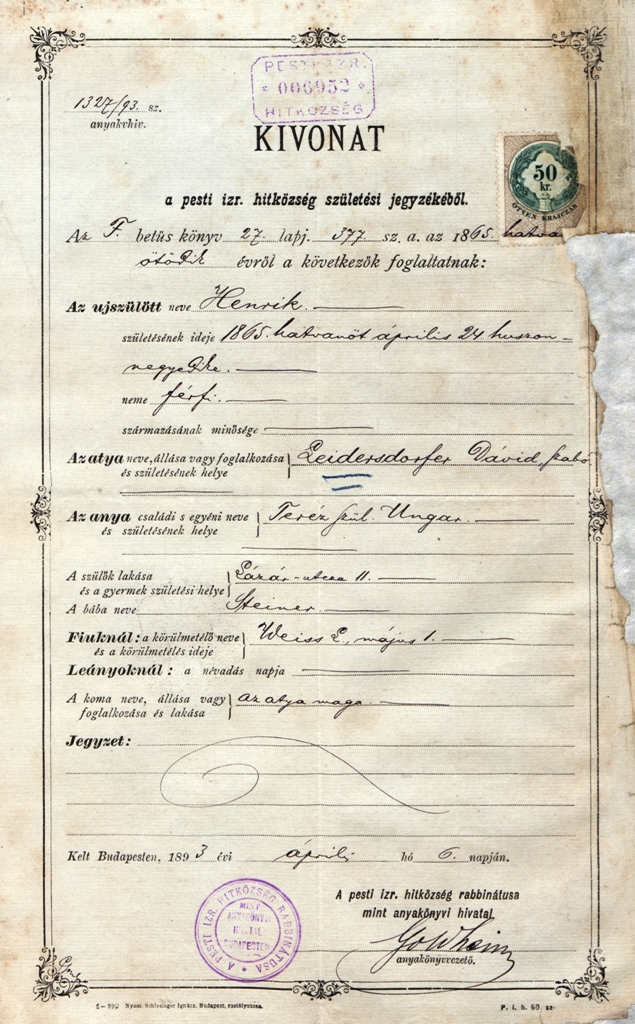 PESTI IZR.
* 006952 *
HITKÖZSÉG
1327/93. sz.
anyakvhiv.
KIVONAT
50
kr.
ÖTVEN KRAJCZÁR
a pesti izr. hitközség születési jegyzékéből.
Az F. betüs könyv 27. lapj. 377 sz. a. az 1865. hatvan
ötödik évről a következők foglaltatnak:
Az ujszülött neve Henrik.
születésének ideje 1865. hatvanöt április 24. huszon-
negyedike.
neme férfi.
származásának minősége
Az atya neve, állása vagy foglalkozása és születésének helye } Leidersdorfer Dávid, szabó
Az anya családi s egyéni neve és születésének helye } Teréz szül. Ungar.
A szülők lakása és a gyermek születési helye } Lázár-utcza 11.
A bába neve Steiner.
Fiuknál: a körülmetélő neve és a körülmetélés ideje } Weiss L., május 1.
Leányoknál: a névadás napja
A koma neve, állása vagy foglalkozása és lakása } az atya maga.
Jegyzet:
Kelt Budapesten, 1893 évi április hó 6. napján.
A pesti izr. hitközség rabbinátusa
mint anyakönyvi hivatal.
Goldheim
anyakönyvvezető.
A PESTI IZR. HITKÖZSÉG RABBINÁTUSA
MINT
ANYAKÖNYVI
HIVATAL
BUDAPESTEN
Nyom. Schlesinger Ignácz, Budapest,
P. i. h. 60. sz.